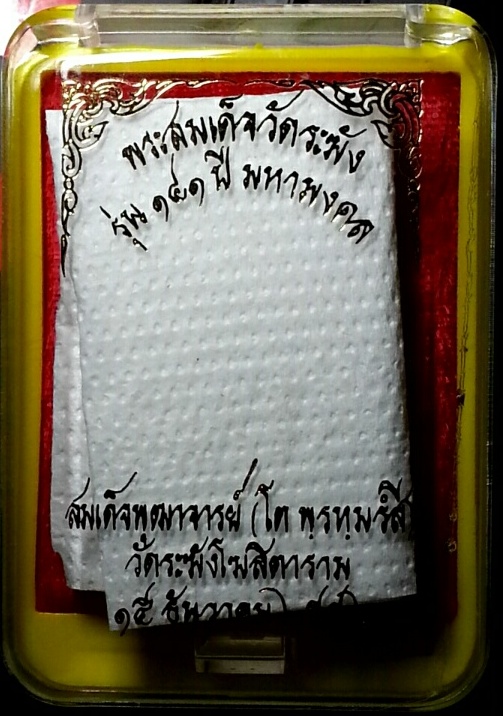 พระสมเด็จวัดระฆัง
รุ่น ๑๔๑ ปี มหามงคล
สมเด็จพุฒาจารย์ (โต พฺรหฺมรํสี
วัดระฆังโฆสิตาราม
๑๕ ธันวาคม